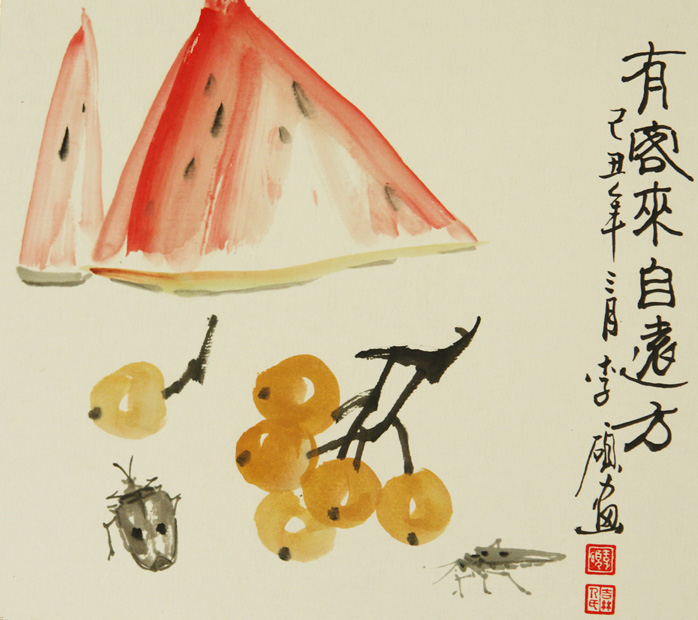 有客來自遠方
己丑年三月李碩畫